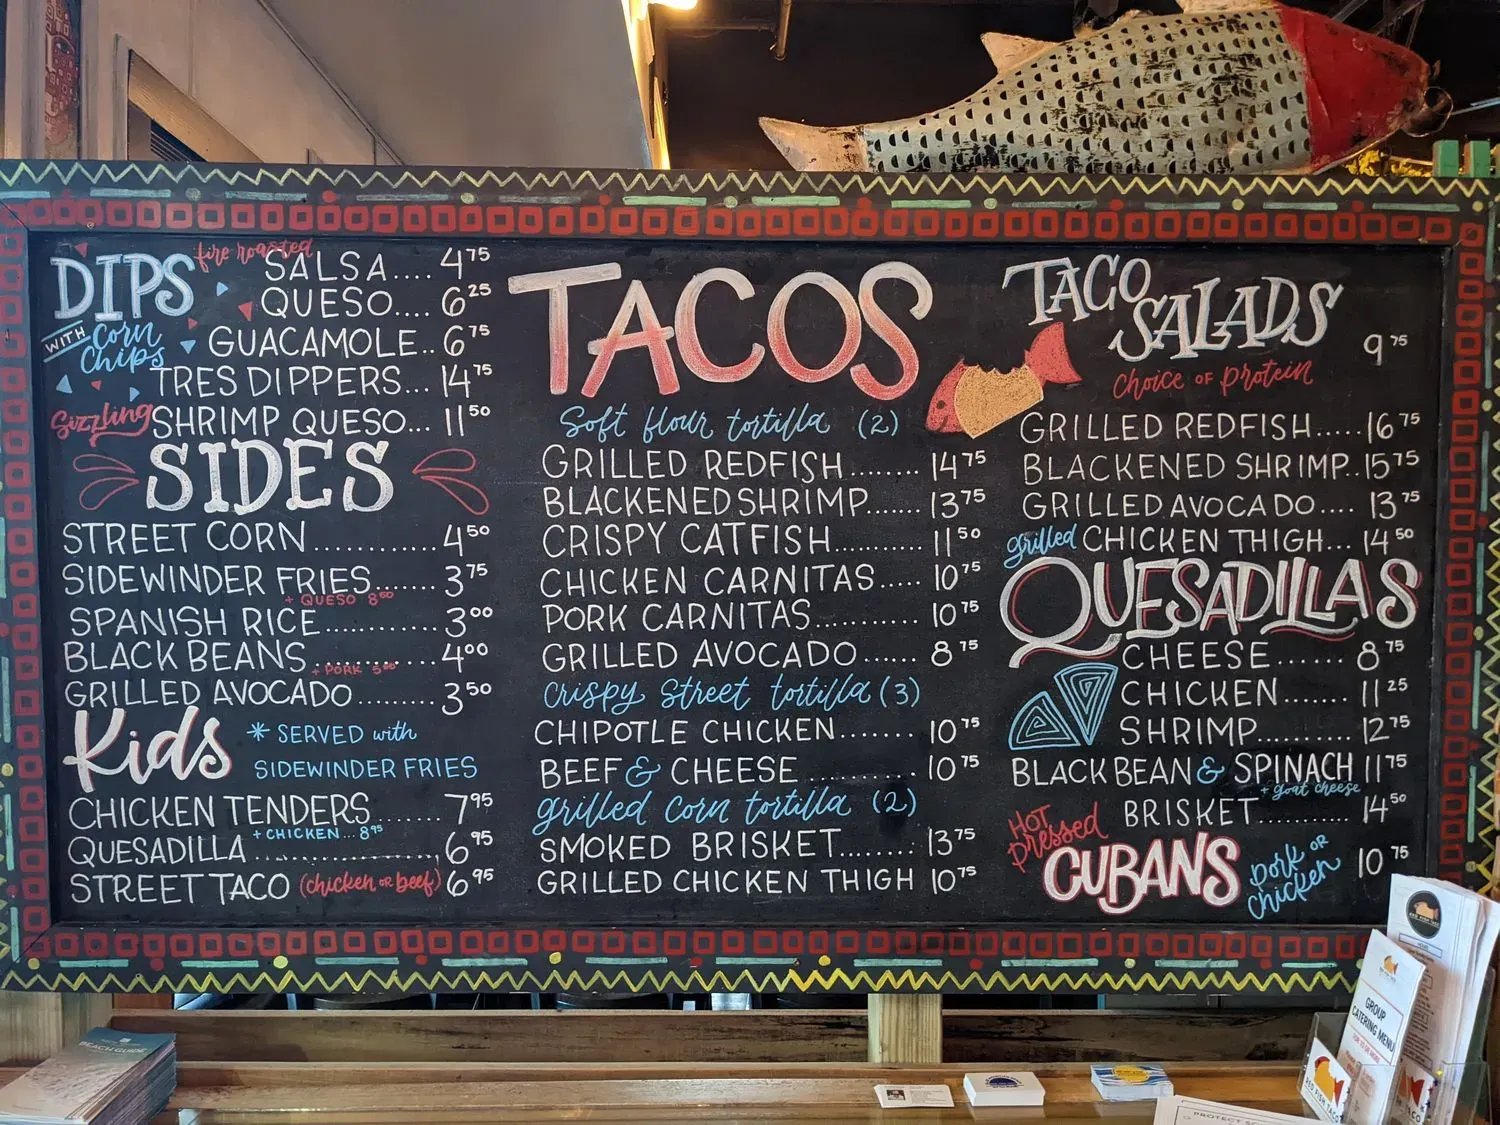 DIPS
WITH Corn Chips
fire roasted SALSA.... 4 75
QUESO.... 6 25
GUACAMOLE.. 6 75
TRES DIPPERS... 14 75
Sizzling SHRIMP QUESO... 11 50
SIDES
STREET CORN............ 4 50
SIDEWINDER FRIES....... 3 75
+ QUESO 8 50
SPANISH RICE........... 3 00
BLACK BEANS............ 4 00
+ PORK 5 00
GRILLED AVOCADO......... 3 50
Kids
* SERVED with
SIDEWINDER FRIES
CHICKEN TENDERS....... 7 95
+ CHICKEN... 8 95
QUESADILLA.................. 6 95
STREET TACO (chicken or beef) 6 95
TACOS
Soft flour tortilla (2)
GRILLED REDFISH....... 14 75
BLACKENED SHRIMP....... 13 75
CRISPY CATFISH.......... 11 50
CHICKEN CARNITAS..... 10 75
PORK CARNITAS........... 10 75
GRILLED AVOCADO...... 8 75
Crispy Street tortilla (3)
CHIPOTLE CHICKEN....... 10 75
BEEF & CHEESE ........... 10 75
grilled corn tortilla (2)
SMOKED BRISKET....... 13 75
GRILLED CHICKEN THIGH 10 75
TACO
SALADS
9 75
choice of protein
GRILLED REDFISH..... 16 75
BLACKENED SHRIMP.. 15 75
GRILLED AVOCADO.... 13 75
grilled CHICKEN THIGH... 14 50
QUESADILLAS
CHEESE...... 8 75
CHICKEN....... 11 25
SHRIMP.......... 12 75
BLACK BEAN & SPINACH 11 75
+ goat cheese
BRISKET.......... 14 50
HOT pressed
CUBANS
pork or chicken
10 75
BEACH GUIDE
GROUP
CATERING MENU
RED FISH TACO